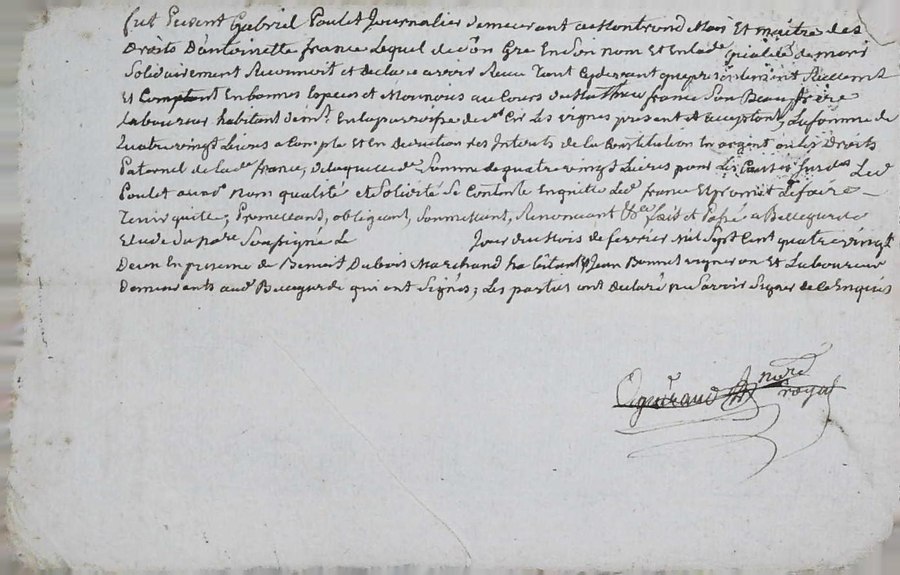 fut Present Gabriel Poulet Journalier demeurant a Montrond Mari Et maitre des
Droits D'antoinette france Lequel de son Gré En Son nom Et En lad. qualité de mari
Solidairement Reconnoit et declare avoir Recu Tant Cydevant que presentement Reellemt
Et Comptant En bonnes Especes et Monnoies au Cours de Mathieu france Son Beau frère
laboureur habitant En la parroisse de St Cir Les vignes present Et acceptant, La somme de
Quatre vingt Livres a Compte Et En Deduction des Interets de la Constitution En argent Droits
Paternel de lad france, De laquelle de Somme de quatre vingt Livres pour Les Causes susd. Led
Poulet aux nom qualité et Solidité Se Contente En quitte led. france Et promet de faire
Tenir quitte; Promettant, obligeant, Soumettant, Renonceant &ca fait et Passé a Bellegarde
Etude du notre Soussigné Le Jour du Mois de fevrier Mil Sept Cent quatre vingt
Deux En presence de Benoit Dubois Marchand habitant & Jean Bonnet vigneron Et Laboureur
Demeurants aud Bellegarde qui ont Signés; Les parties ont declaré ne Savoir Signer de ce Enquis
nore
royal